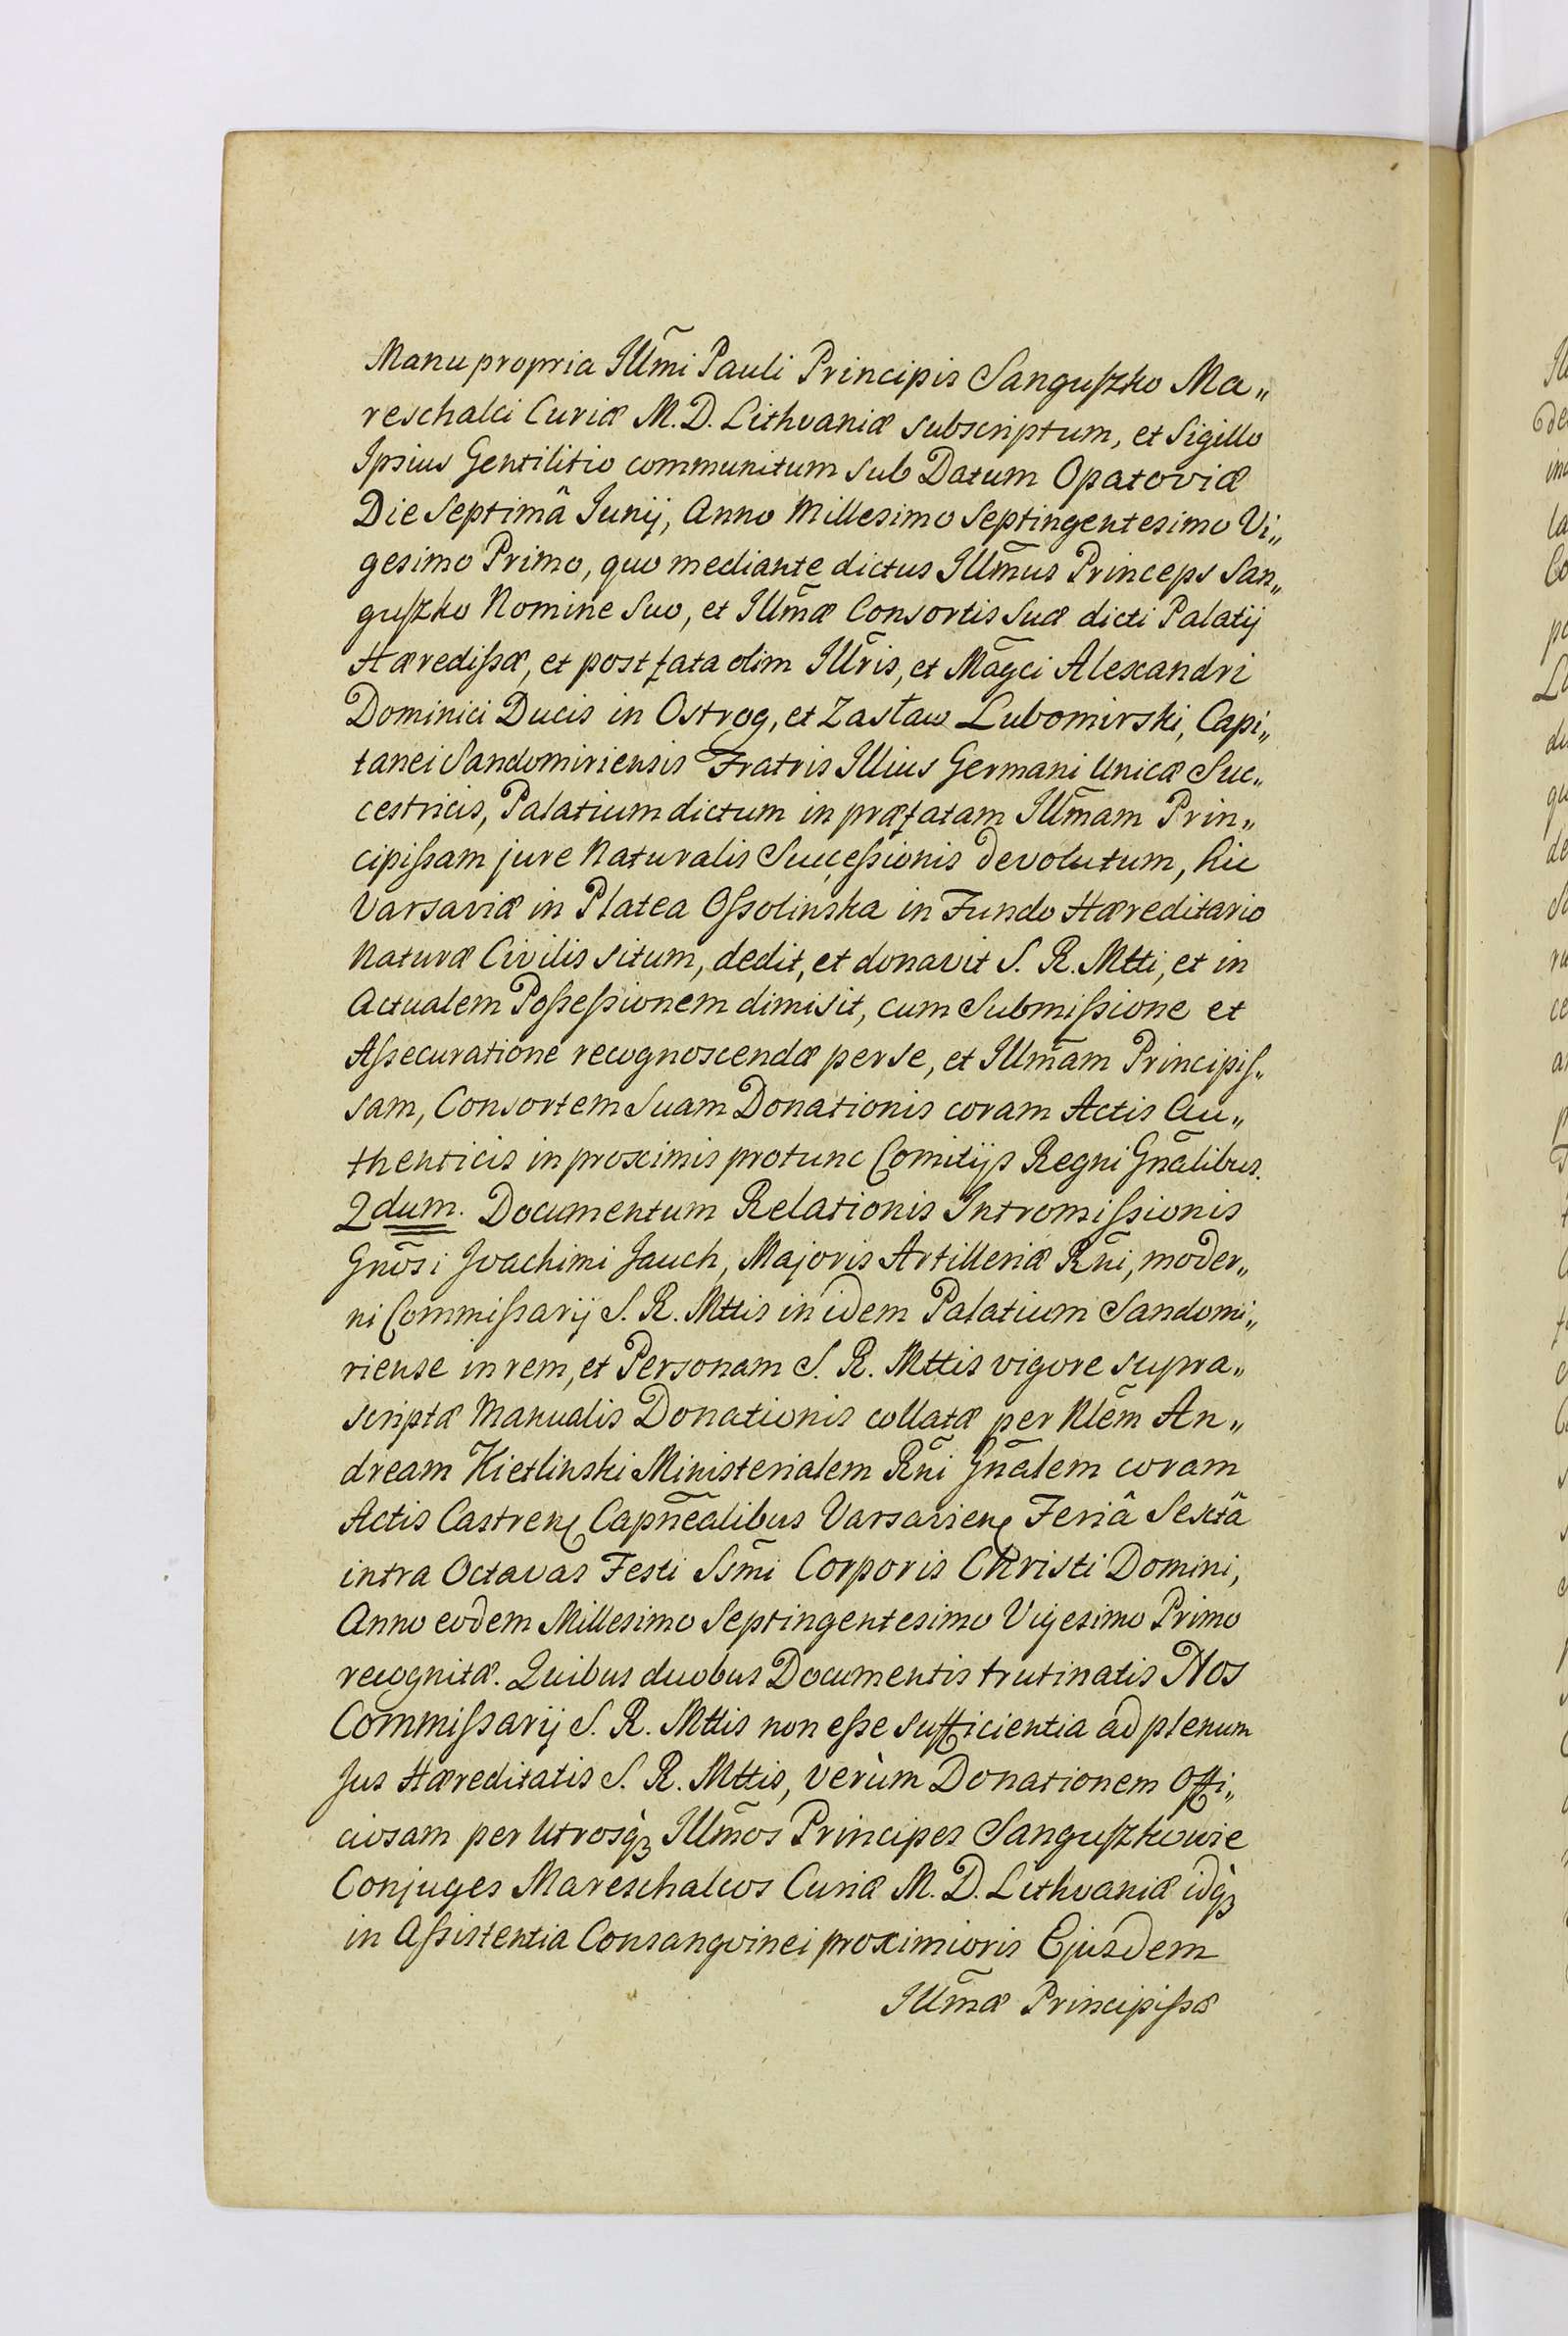 Manu propria Illm̃i Pauli Principis Sanguſzko Ma„
reschalci Curiæ M. D. Lithvaniæ subscriptum, et Sigillo
Ipsius Gentilitio communitum sub Datum Opatoviæ
Die Septimâ Junij, Anno Millesimo Septingentesimo Vi„
gesimo Primo, quo mediante dictus Illm̃us Princeps San„
guſzko Nomine Suo, et Illm̃æ Consortis Suæ dicti Palatij
Hærediſsæ, et post fata olim Illr̃is, et Mag̃ci Alexandri
Dominici Ducis in Ostrog, et Zasław Lubomirski, Capi„
tanei Sandomiriensis Fratris Illius Germani Unicæ Suc„
cestricis, Palatium dictum in præfatam Illm̃am Prin„
cipiſsam jure Naturalis Succeſsionis devolutum, hic
Varsaviæ in Platea Oſsolinska in Fundo Hæreditario
Naturæ Civilis situm, dedit, et donavit S. R. Mtti, et in
Actualem Poſseſsionem dimisit, cum Submiſsione et
Aſsecuratione recognoscendæ per se, et Illm̃am Principiſ„
sam, Consortem Suam Donationis coram Actis Au„
thenticis in proximis protunc Comitijs Regni Gñalibus.
2dum. Documentum Relationis Intromiſsionis
Gnõsi Joachimi Jauch, Majoris Artilleriæ Rñi, moder„
ni Commiſsarij S. R. Mttis in idem Palatium Sandomi„
riense in rem, et Personam S. R. Mttis vigore supra„
scriptæ Manualis Donationis collatæ per Nlẽm An„
dream Kietlinski Ministerialem Rñi Gñalem coram
Actis Castren Capñealibus Varsavien Feriâ Sextâ
intra Octavas Festi Ssm̃i Corporis Christi Domini,
Anno eodem Millesimo Septingentesimo Vigesimo Primo
recognitæ. Quibus duobus Documentis trutinatis Nos
Commiſsarij S. R. Mttis non eſse sufficientia ad plenum
Jus Hæreditatis S. R. Mttis, verùm Donationem Offi„
ciosam per Utrosq̀ꝫ Illm̃os Principes Sanguſzkowie
Conjuges Mareschalcos Curiæ M. D. Lithvaniæ idq̀ꝫ
in Aſsistentia Consangvinei proximioris Ejusdem
Illm̃æ Principiſsæ